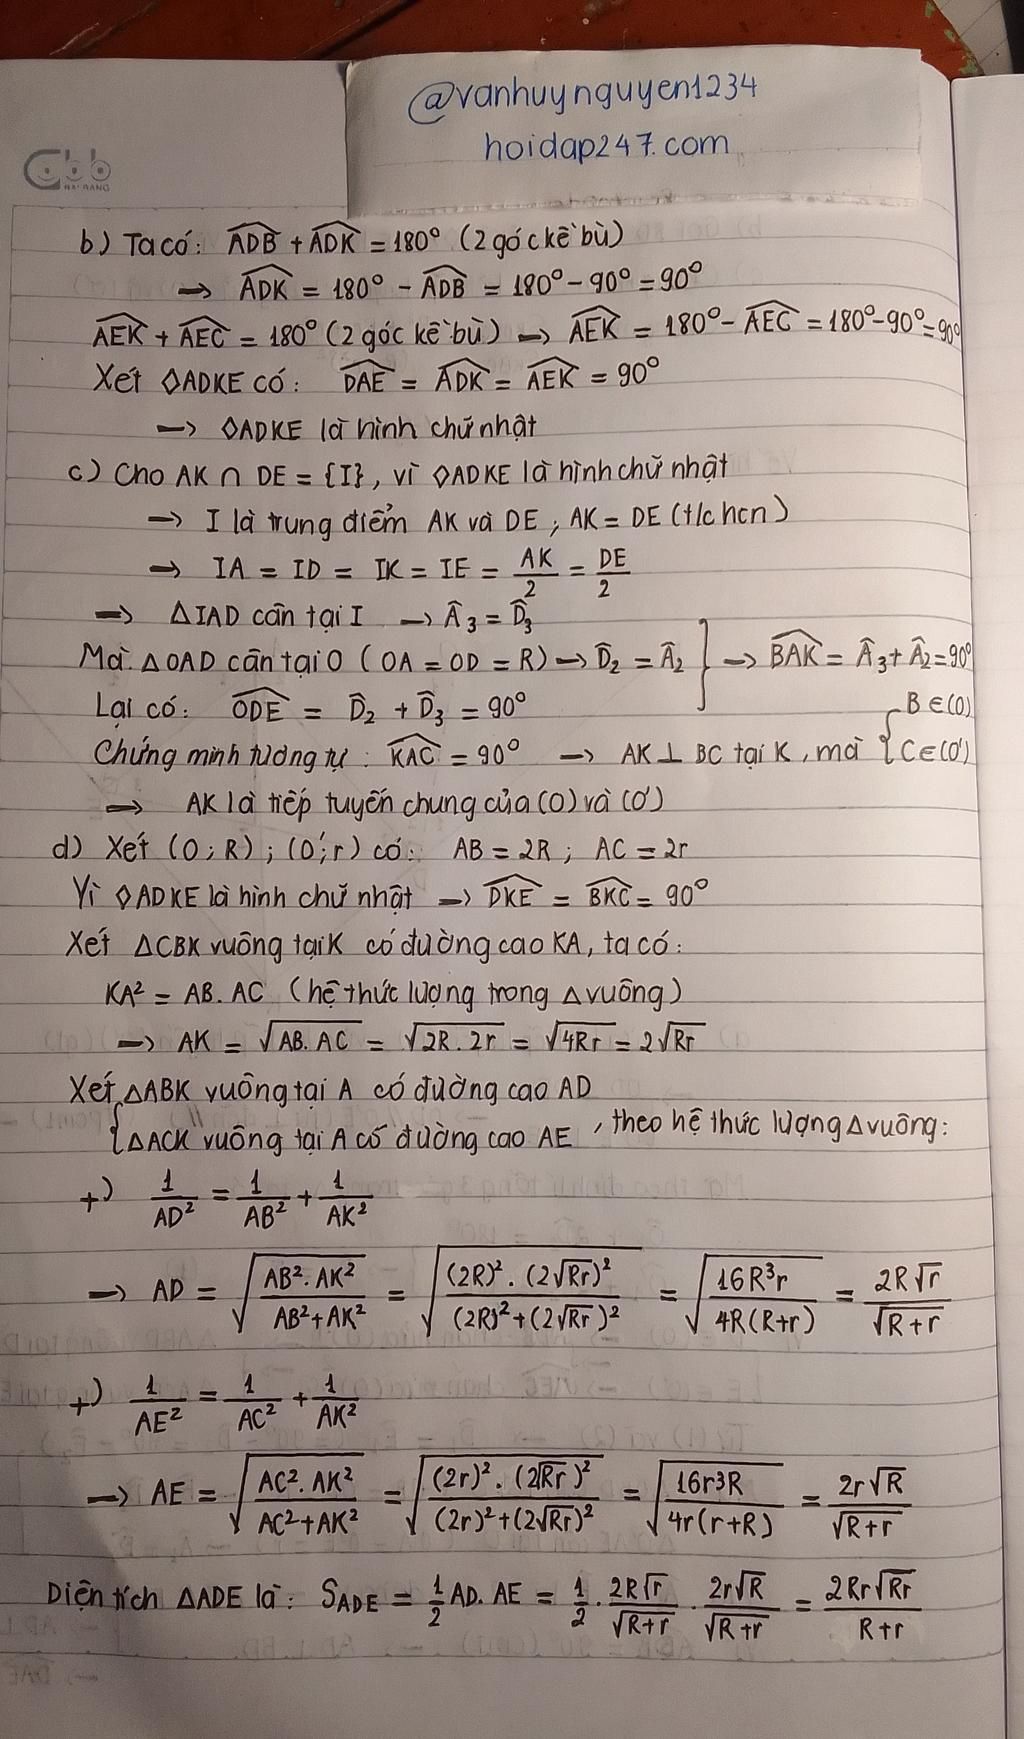 @vanhuynguyen1234
hoidap247.com
Cbb
HẢI BĂNG
b) Ta có: ADB + ADK = 180° (2 góc kề bù)
→ ADK = 180° - ADB = 180° - 90° = 90°
AEK + AEC = 180° (2 góc kề bù) → AEK = 180° - AEC = 180° - 90° = 90°
Xét ◊ADKE có: DAE = ADK = AEK = 90°
→ ◊ADKE là hình chữ nhật
c) Cho AK ∩ DE = {I}, vì ◊ADKE là hình chữ nhật
→ I là trung điểm AK và DE, AK = DE (t/c hcn)
→ IA = ID = IK = IE = AK/2 = DE/2
→ ΔIAD cân tại I → Â3 = D̂3
Mà ΔOAD cân tại O (OA = OD = R) → D̂2 = Â2 } → BAK = Â3 + Â2 = 90°
Lại có: ODE = D̂2 + D̂3 = 90°
Chứng minh tương tự: KAC = 90° → AK ⊥ BC tại K, mà { B ∈ (O) C ∈ (O')
→ AK là tiếp tuyến chung của (O) và (O')
d) Xét (O; R); (O'; r) có: AB = 2R; AC = 2r
Vì ◊ADKE là hình chữ nhật → DKE = BKC = 90°
Xét ΔCBK vuông tại K có đường cao KA, ta có:
KA² = AB. AC (hệ thức lượng trong Δ vuông)
→ AK = √(AB. AC) = √(2R. 2r) = √(4Rr) = 2√(Rr)
Xét { ΔABK vuông tại A có đường cao AD
ΔACK vuông tại A có đường cao AE, theo hệ thức lượng Δ vuông:
+) 1/AD² = 1/AB² + 1/AK²
→ AD = √((AB². AK²)/(AB² + AK²)) = √(((2R)². (2√Rr)²)/((2R)² + (2√Rr)²)) = √(16R³r/(4R(R+r))) = 2R√r/√(R+r)
+) 1/AE² = 1/AC² + 1/AK²
→ AE = √((AC². AK²)/(AC² + AK²)) = √(((2r)². (2√Rr)²)/((2r)² + (2√Rr)²)) = √(16r³R/(4r(r+R))) = 2r√R/√(R+r)
Diện tích ΔADE là: S_ADE = 1/2 AD. AE = 1/2 . 2R√r/√(R+r) . 2r√R/√(R+r) = 2Rr√(Rr)/(R+r)